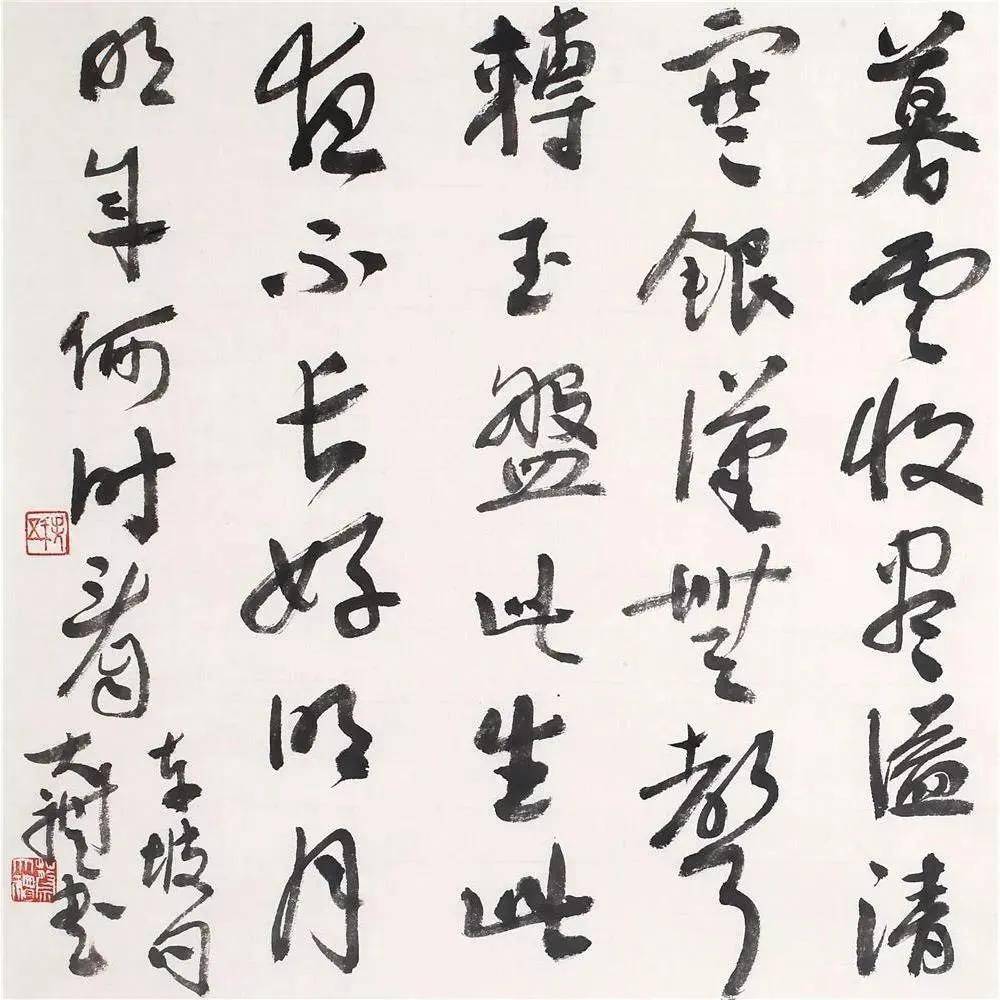 暮雲收盡溢清
寒銀漢無聲
轉玉盤此生此
夜不長好明月
明年何時看
東坡句
大
書